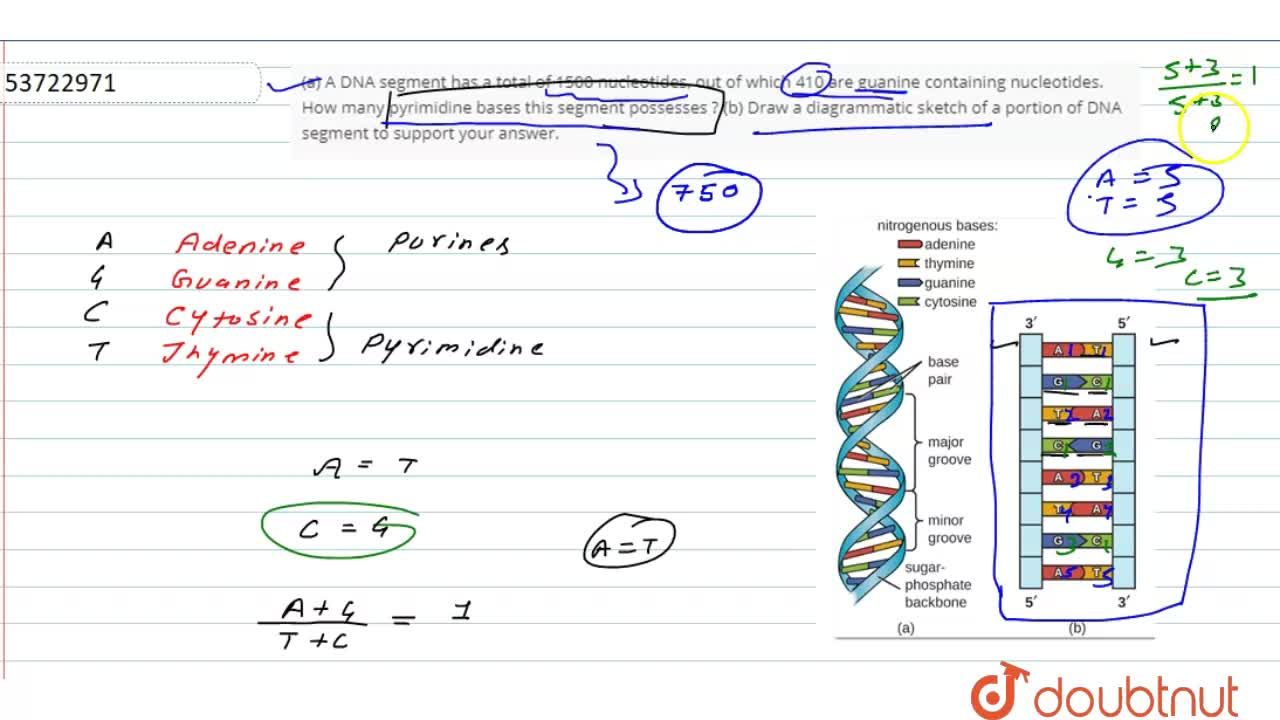 53722971
(a) A DNA segment has a total of 1500 nucleotides, out of which 410 are guanine containing nucleotides.
How many pyrimidine bases this segment possesses ? (b) Draw a diagrammatic sketch of a portion of DNA
segment to support your answer.
5+3
5+3
= 1
8
750
A = 5
T = 5
G = 3
C = 3
A Adenine
G Guanine
Purines
C Cytosine
T Thymine
Pyrimidine
A = T
C = G
A = T
A + G
T + C
= 1
nitrogenous bases:
adenine
thymine
guanine
cytosine
base
pair
major
groove
minor
groove
sugar-
phosphate
backbone
(a)
3′ 5′
A 1 T 1
G C
T 2 A 2
C G
A 3 T 3
T 4 A 4
G 3 C
A 5 T 5
5′ 3′
(b)
doubtnut